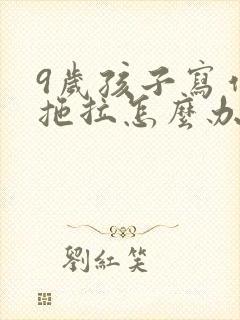 9歲孩子寫
拖拉怎麼办
劉紅笑